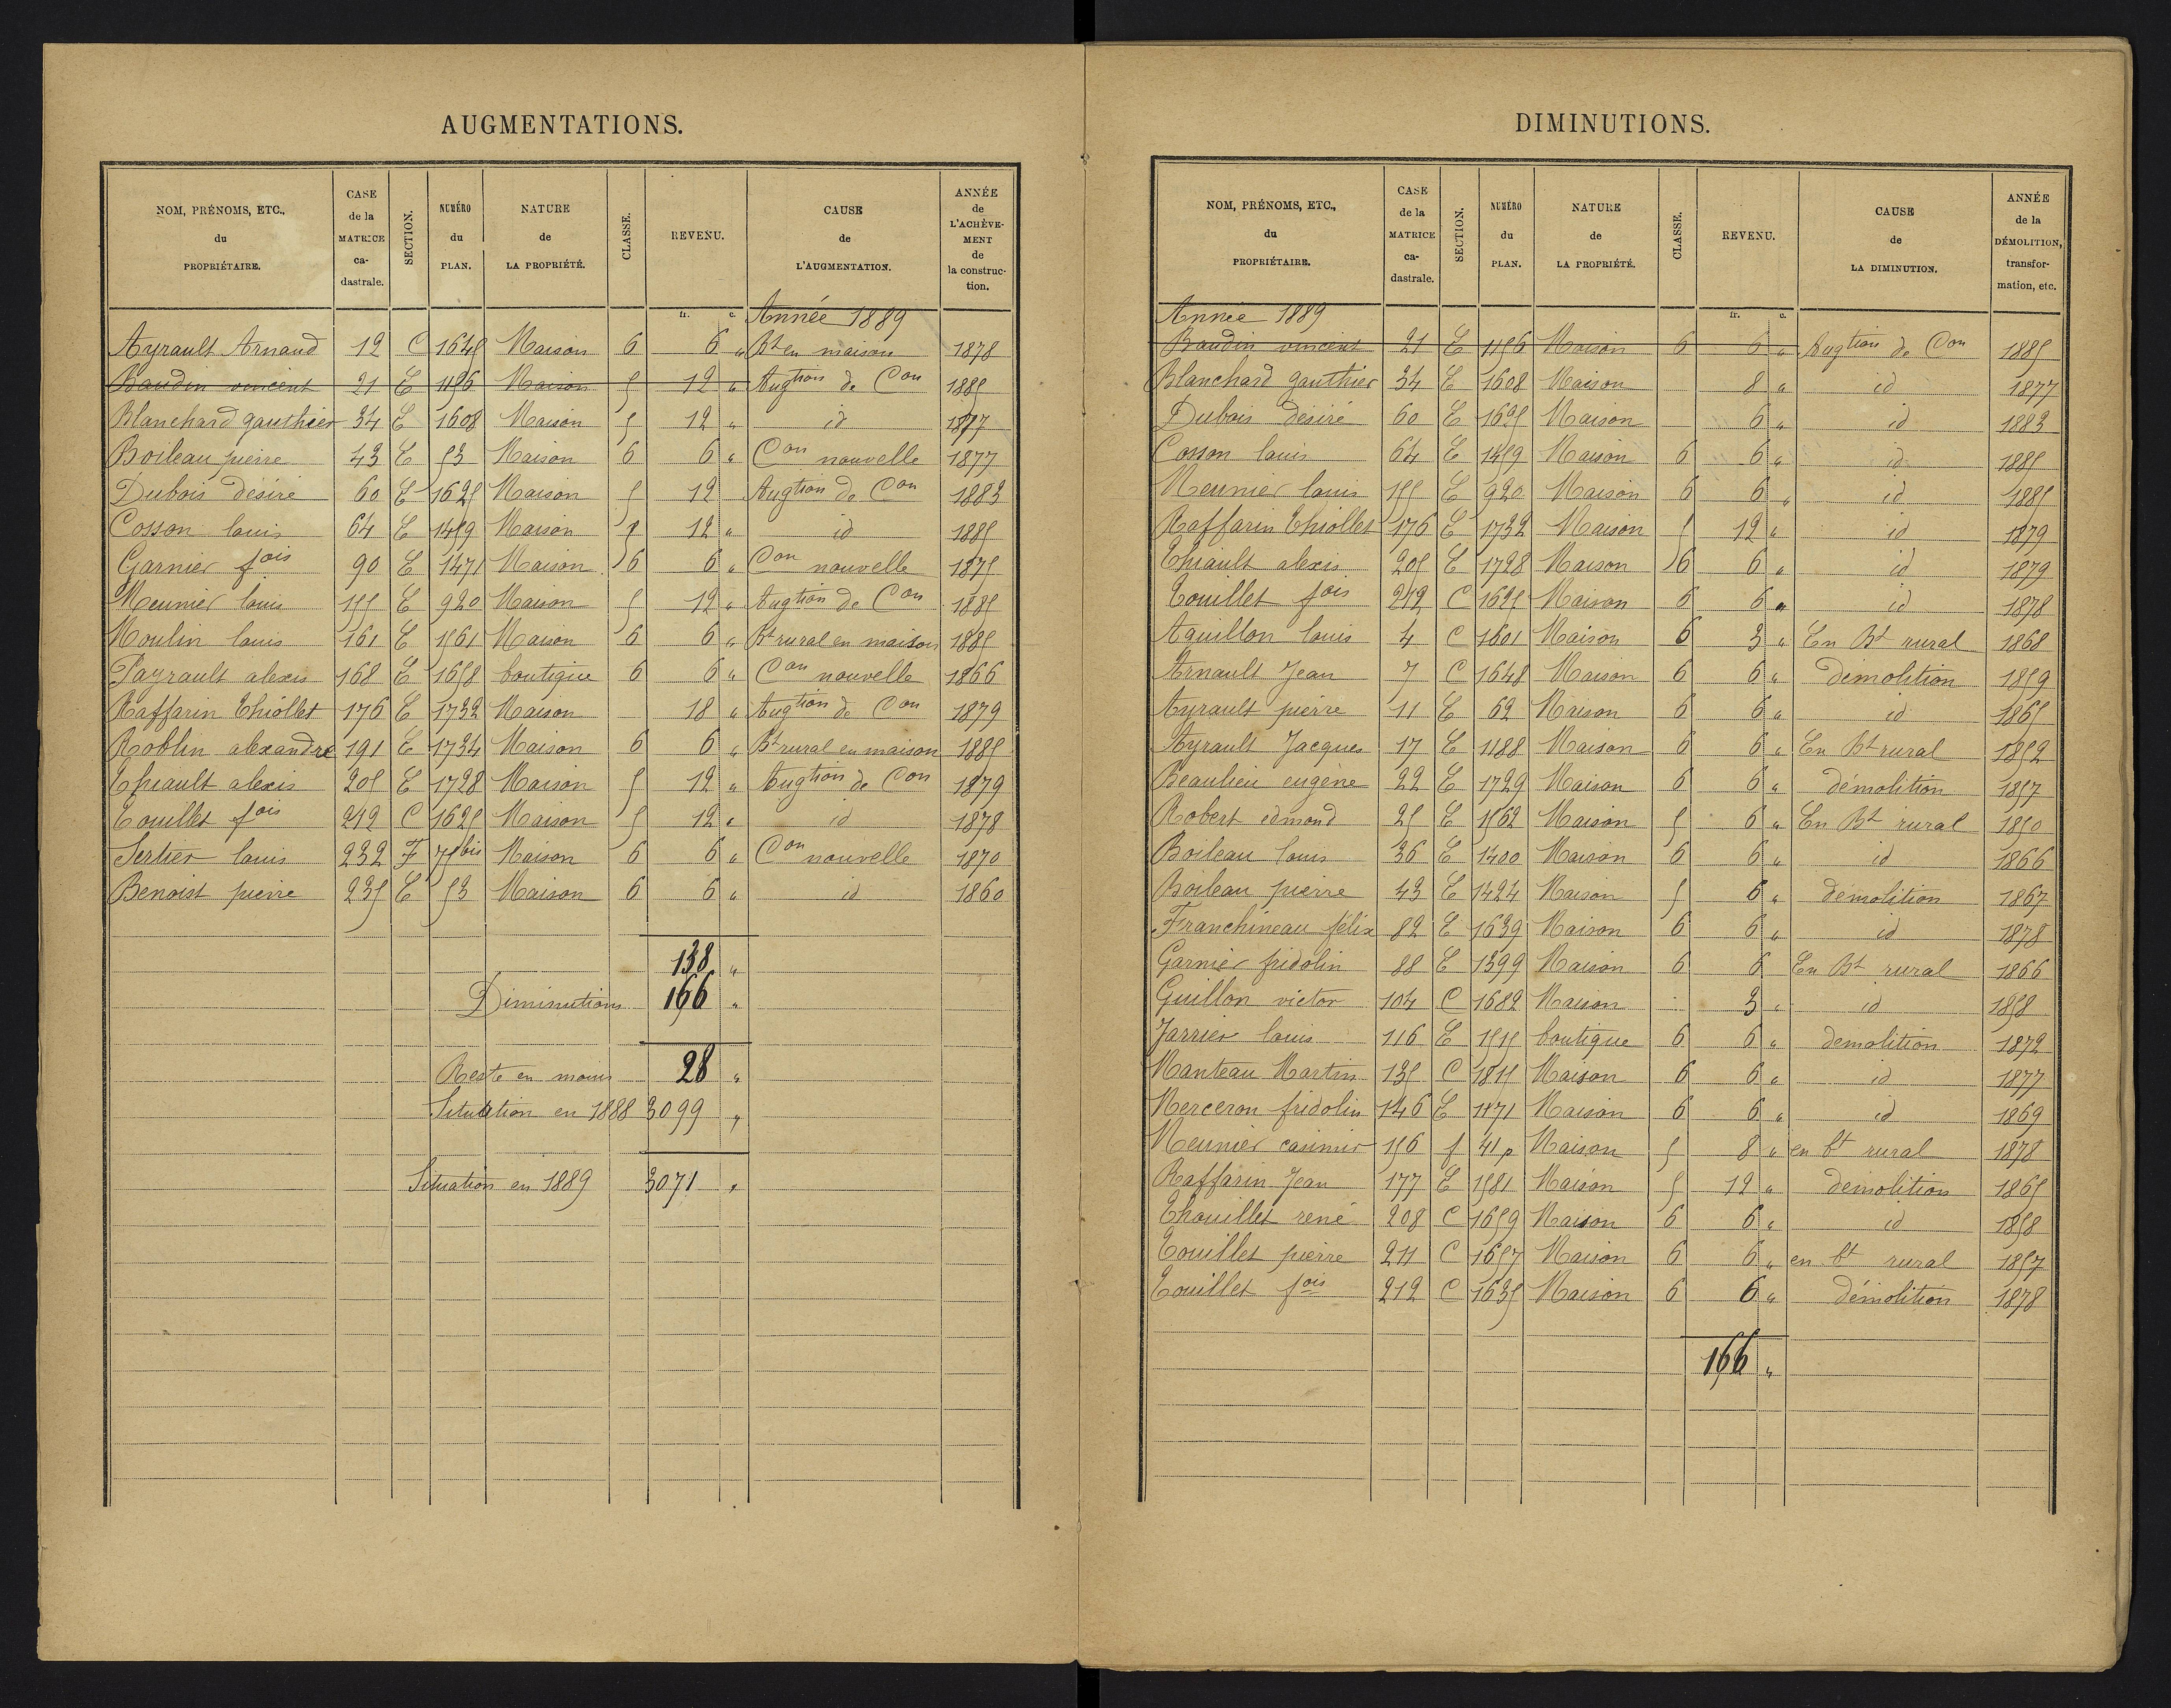 AUGMENTATIONS.
NOM, PRÉNOMS, ETC., du PROPRIÉTAIRE. CASE de la MATRICE ca-dastrale. SECTION. NUMÉRO du PLAN. NATURE de LA PROPRIÉTÉ. CLASSE. REVENU. CAUSE de L'AUGMENTATION. ANNÉE de L'ACHÈVE-MENT de la construc-tion.
fr. c. Année 1889
Ayrault Arnaud 12 C 1645 Maison 6 6 " Bt en maison 1878
Baudin vincent 21 E 1156 Maison 5 12 " Augtion de Con 1885
Blanchard gauthier 34 E 1608 Maison 5 12 " id 1877
Boileau pierre 43 E 53 Maison 6 6 " Con nouvelle 1877
Dubois désiré 60 E 1625 Maison 5 12 Augtion de Con 1883
Cosson louis 64 E 1459 Maison 5 12 " id 1885
Garnier fois 90 E 1471 Maison 6 6 " Con nouvelle 1875
Meunier louis 155 E 920 Maison 5 12 " Augtion de Con 1885
Moulin louis 161 E 1561 Maison 6 6 " Bt rural en maison 1885
Payrault alexis 168 E 1658 boutique 6 6 " Con nouvelle 1866
Raffarin Thiollet 176 E 1732 Maison 18 " Augtion de Con 1879
Roblin alexandre 191 E 1734 Maison 6 6 " Bt rural en maison 1885
Thiault alexis 205 E 1728 Maison 5 12 " Augtion de Con 1879
Touillet fois 212 C 1625 Maison 5 12 " id 1878
Sertier louis 232 F 75bis Maison 6 6 " Con nouvelle 1870
Benoist pierre 235 E 53 Maison 6 6 " id 1860
138 "
Diminutions 166 "
Reste en moins 28 "
Situation en 1888 3099 "
Situation en 1889 3071 "
DIMINUTIONS.
NOM, PRÉNOMS, ETC., du PROPRIÉTAIRE. CASE de la MATRICE ca-dastrale. SECTION. NUMÉRO du PLAN. NATURE de LA PROPRIÉTÉ. CLASSE. REVENU. CAUSE de LA DIMINUTION. ANNÉE de la DÉMOLITION, transfor-mation, etc.
Année 1889 fr. c.
Baudin vincent 21 E 1156 Maison 6 6 " Augtion de Con 1885
Blanchard gauthier 34 E 1608 Maison 8 " id 1877
Dubois désiré 60 E 1625 Maison 6 " id 1883
Cosson louis 64 E 1459 Maison 6 6 " id 1885
Meunier louis 155 E 920 Maison 6 6 " id 1885
Raffarin Thiollet 176 E 1732 Maison 5 12 " id 1879
Thiault alexis 205 E 1728 Maison 6 6 " id 1879
Touillet fois 212 C 1625 Maison 6 6 " id 1878
Aguillon louis 4 C 1601 Maison 6 3 " En Bt rural 1868
Arnault Jean 7 C 1648 Maison 6 6 " démolition 1859
Ayrault pierre 11 E 62 Maison 6 6 " id 1865
Ayrault Jacques 17 E 1188 Maison 6 6 " En Bt rural 1852
Beaulieu eugène 22 E 1729 Maison 6 6 " démolition 1857
Robert edmond 25 E 1562 Maison 5 6 " En Bt rural 1850
Boileau louis 36 E 1400 Maison 6 6 " id 1866
Boileau pierre 43 E 1424 Maison 5 6 " démolition 1867
Franchineau félix 82 E 1639 Maison 6 6 " id 1878
Garnier fridolin 88 E 1399 Maison 6 6 En Bt rural 1866
Guillon victor 104 C 1682 Maison 3 " id 1858
Jarrier louis 116 E 1515 boutique 6 6 " démolition 1872
Manteau Martin 135 C 1815 Maison 6 6 " id 1877
Merceron fridolin 146 E 1171 Maison 6 6 " id 1869
Meunier casimir 156 f 41p Maison 5 8 " en bt rural 1878
Raffarin Jean 177 E 1581 Maison 5 12 " démolition 1865
Thouillet rené 208 C 1659 Maison 6 6 " id 1858
Touillet pierre 211 C 1657 Maison 6 6 " en bt rural 1857
Touillet fois 212 C 1635 Maison 6 6 " démolition 1878
166 "